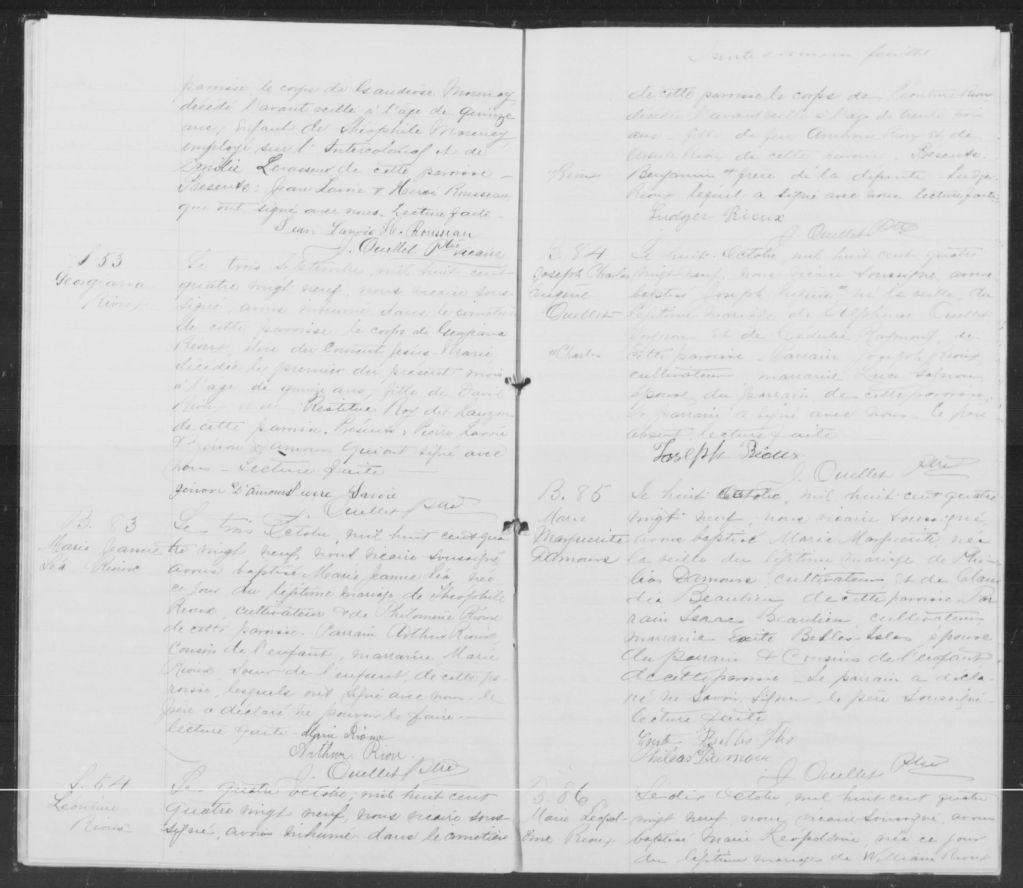 paroisse le corps de Morency
décédé l'avant veille à l'age de quinze
ans, Enfant de Théophile Morency
employé sur l'Intercolonial et de
Levasseur de cette paroisse –
Présents: Jean Lavoie & Henri Rousseau
qui ont signé avec nous. Lecture faite –
Jean Lavoie H. Rousseau
J. Ouellet Ptre vicaire
S 53
Georgiana
Rioux
Le trois Septembre, mil huit cent
quatre vingt neuf, nous vicaire sous-
signé, avons inhumé dans le cimetière
de cette paroisse le corps de Georgiana
Rioux, élève du Couvent Jésus-Marie,
décédée le premier du présent mois
à l'age de quinze ans, fille de David
Rioux et de Restitue Roy dit Lauzon
de cette paroisse. Présents: Pierre Lavoie
D'amours qui ont signé avec
nous – Lecture faite –
D'amours Pierre Lavoie
J. Ouellet Ptre
B. 83
Marie Jeanne
Léa Rioux
Le trois Octobre, mil huit cent qua-
tre vingt neuf, nous vicaire soussigné,
avons baptisé Marie Jeanne Léa, née
ce jour du légitime mariage de Théophile
Rioux, cultivateur & de Philomène Rioux
de cette paroisse. Parrain Arthur Rioux,
cousin de l'enfant, marraine Marie
Rioux, Soeur de l'enfant, de cette pa-
roisse, lesquels ont signé avec nous – le
père a déclaré ne pouvoir le faire –
lecture faite – Marie Rioux
Arthur Rioux
J. Ouellet Ptre
S. 54
Léontine
Rioux
Le quatre Octobre, mil huit cent
quatre vingt neuf, nous vicaire sous-
signé, avons inhumé dans le cimetière
feuillet
de cette paroisse le corps de Léontine Rioux
décédée l'avant veille à l'age de trente
ans – fille de feu Rioux et de
Rioux de cette paroisse. Présents:
Rioux
Benjamin frère de la défunte – Ludger
Rioux lequel a signé avec nous lecture faite
Ludger Rioux
J. Ouellet Ptre
B. 84
Joseph Charles
Eugène
Ouellet
Le huit Octobre, mil huit cent quatre
vingt neuf, nous vicaire soussigné avons
baptisé Joseph Eugène né la veille, du
légitime mariage de Alphonse Ouellet
et de Raymond, de
Charles
cette paroisse – Parrain Joseph Rioux
cultivateur, marraine Luce
épouse du parrain de cette paroisse,
le parrain a signé avec nous – le père
absent, lecture faite –
Joseph Rioux
J. Ouellet ptre
B. 85
Marie
Marguerite
Damours
Le huit Octobre, mil huit cent quatre
vingt neuf, nous vicaire soussigné,
avons baptisé Marie Marguerite née
la veille du légitime mariage de Phi-
léas Damours, cultivateur, et de Clau-
dia Beaulieu de cette paroisse Par-
rain Isaac Beaulieu, cultivateur,
marraine Belles-Isles épouse
du parrain & Cousins de l'enfant
de cette paroisse – Le parrain a décla-
ré ne savoir signer – le père soussigné
lecture faite
Belles Isles
Philéas Damours
J. Ouellet Ptre
B. 86
Marie Léopol-
dine Rioux
Le dix Octobre, mil huit cent quatre
vingt neuf, nous vicaire soussigné, avons
baptisé Marie Léopoldine, née ce jour
du légitime mariage de William Rioux